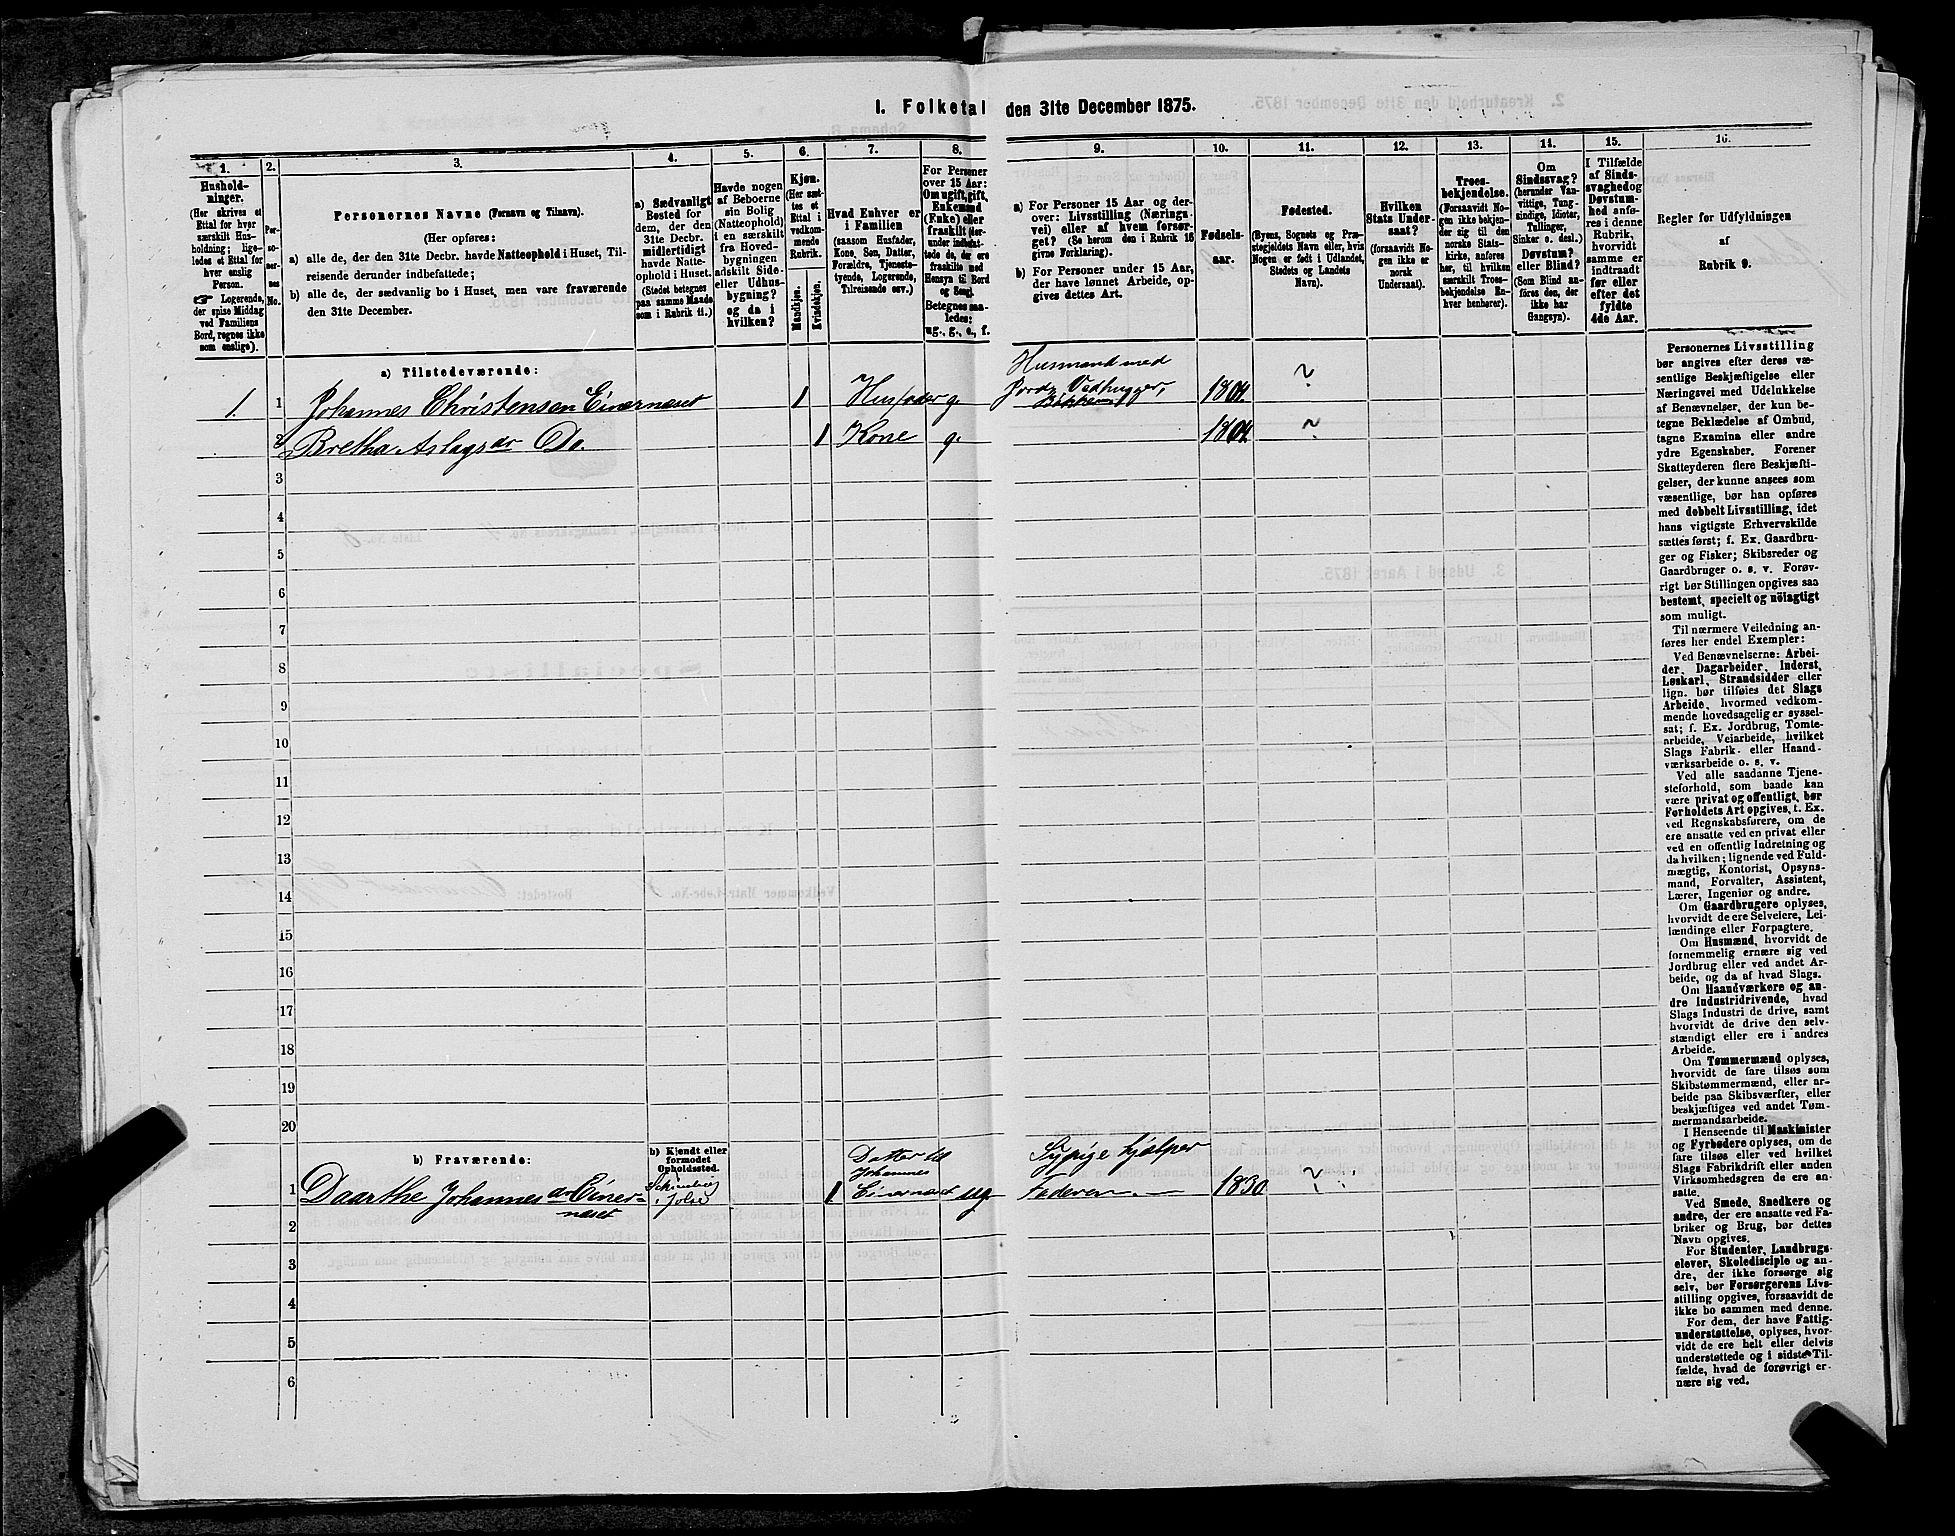 I. Folketal den 31te December 1875.
1.
Hushold-
ninger.
(Her skrives et
Ettal for hver
særskilt Hus-
holdning; lige-
ledes et Ettal for
hver enslig
Person.
☞ Logerende,
der spise Middag
ved Familiens
Bord, regnes ikke
som enslige).
2.
Per-
so-
ner-
nes
No.
3.
Personernes Navne (Fornavn og Tilnavn).
(Her opføres:
a) alle de, der den 31te Decbr. havde Natteophold i Huset, Til-
reisende derunder indbefattede;
b) alle de, der sædvanlig bo i Huset, men vare fraværende
den 31te December.
4.
a) Sædvanligt
Bosted for
dem, der den
31te Decbr.
midlertidigt
havde Natte-
ophold i Huset.
(Stedet betegnes
paa samme Maade
som i Rubrik 11.)
5.
Havde nogen
af Beboerne
sin Bolig
(Natteophold)
i en særskilt
fra Hoved-
bygningen
adskilt Side-
eller Udhus-
bygning?
og da i
hvilken?
6.
Kjøn.
(Her sæt-
tes et
Ettal i
vedkom-
mende
Rubrik.
Mandkjøn.
Kvindekjøn.
7.
Hvad Enhver er
i Familien
(saasom Husfader,
Kone, Søn, Datter,
Forældre, Tjeneste-
tyende, Logerende,
Tilreisende osv.)
8.
For Personer
over 15 Aar:
Om ugift, gift,
Enkemand
(Enke) eller
fraskilt (der-
under indbefat-
tede de, der ere
fraskilte med
Hensyn til Bord
og Seng).
Betegnes saa-
ledes:
ug., g., e., f.
9.
a) For Personer 15 Aar og der-
over: Livsstilling (Nærings-
vei) eller af hvem forsør-
get? (Se herom den i Rubrik 16
givne Forklaring).
b) For Personer under 15 Aar,
der have lønnet Arbeide, op-
gives dettes Art.
10.
Fødsels-
aar.
11.
Fødested.
(Byens, Sognets og Præ-
stegjeldets Navn eller, hvis
Nogen er født i Udlandet,
Stedets og Landets
Navn).
12.
Hvilken
Stats Under-
saat?
(forsaavidt No-
gen ikke er
norsk
Undersaat).
13.
Troes-
bekjendelse.
(Forsaavidt No-
gen ikke bekjen-
der sig til den
norske Stats-
kirke, anføres
her, til hvilken
særskilt Troes-
bekjendelse En-
hver henhører).
14.
Om
Sindssvag?
(herunder Van-
vittige, Tung-
sindige, Idioter,
Tullinger,
Sinker o. desl.)
Døvstum?
eller Blind?
(Som Blind an-
føres den, der
ikke har
Gangsyn).
15.
I Tilfælde
af Sinds-
svaghed og
Døvstum-
hed anfø-
res i denne
Rubrik,
hvorvidt
samme er
indtraadt
før eller
efter det
fyldte
4de Aar.
16.
Regler for Udfyldningen
af
Rubrik 9.
a) Tilstedeværende:
Husmand med
1. 1 Johannes Christensen Einernæset 1 Husfader g. Jord, Vedhugger, 1804. ?
2 Bretha Aslagsdr Do. 1 Kone g. 1804. ?
3
4
5
6
7
8
9
10
11
12
13
14
15
16
17
18
19
20
b) Fraværende:
b) Kjendt eller
formodet
Opholdssted.
Datter til Sypige hjælper
1 Daarthe Johannes Einer- i Johannes
næset 1 Einernæset ug Faderen 1830 ?
2
3
4
5
6
Personernes Livsstilling
bør angives efter deres væ-
sentlige Beskjæftigelse eller
Næringsvei med Udelukkelse
af Benævnelser, der kun be-
tegne Beklædelse af Ombud,
tagne Examina eller andre
ydre Egenskaber. Forener
Skatteyderen flere Beskjæfti-
gelser, der kunne ansees som
væsentlige, bør han opføres
med dobbelt Livsstilling, idet
hans vigtigste Erhvervskilde
sættes først; f. Ex. Gaardbru-
ger og Fisker; Skibsreder og
Gaardbruger o. s. v. Forøv-
rigt bør Stillingen opgives saa
bestemt, specielt og nöiagtigt
som muligt.
Til nærmere Veiledning an-
føres her endel Exempler:
Ved Benævnelserne: Arbei-
der, Dagarbeider, Inderst,
Løskarl, Strandsidder eller
lign. bør tilføies det Slags
Arbeide, hvormed vedkom-
mende hovedsagelig er syssel-
sat; f. Ex. Jordbrug, Tomte-
arbeide, Veiarbeide, hvilket
Slags Fabrik- eller Haand-
værksarbeide o. s. v.
Ved alle saadanne Tjene-
steforhold, som baade kan
være privat og offentligt, bør
Forholdets Art opgives, t. Ex.
ved Regnskabsførere, om de
ere ansatte ved en privat eller
ved en offentlig Indretning og
da hvilken; lignende ved Fuld-
mægtig, Kontorist, Opsyns-
mand, Forvalter, Assistent,
Lærer, Ingeniør og andre.
Om Gaardbrugere oplyses,
hvorvidt de ere Selveiere, Lei-
lændinge eller Forpagtere.
Om Husmænd, hvorvidt de
fornemmelig ernære sig ved
Jordbrug eller ved andet Ar-
beide, og da af hvad Slags.
Om Haandværkere og an-
dre Industridrivende, hvad
Slags Industri de drive, samt
hvorvidt de drive den selv-
stændigt eller ere i andres
Arbeide.
Om Tømmermænd oplyses,
hvorvidt de fare tilsøs som
Skibstømmermænd, eller ar-
beide paa Skibsværfter, eller
beskjæftiges ved andet Tøm-
mermandsarbeide.
I Henseende til Maskinister
og Fyrbødere oplyses, om de
fare tilsøs eller ved hvilket
Slags Fabrikdrift eller anden
Virksomhedsgren de ere an-
satte.
Ved Smede, Snedkere og
andre, der ere ansatte ved Fa-
briker og Brug, bør dettes
Navn opgives.
For Studenter, Landbrugs-
elever, Skoledisciple og an-
dre, der ikke forsørge sig
selv, bør Forsørgerens Livs-
stilling opgives, forsaavidt de
ikke bo sammen med denne.
For dem, der have Fattig-
understøttelse, oplyses, hvor-
vidt de ere helt eller delvis
understøttede og i sidste Til-
fælde, hvad de forøvrigt er-
nære sig ved.